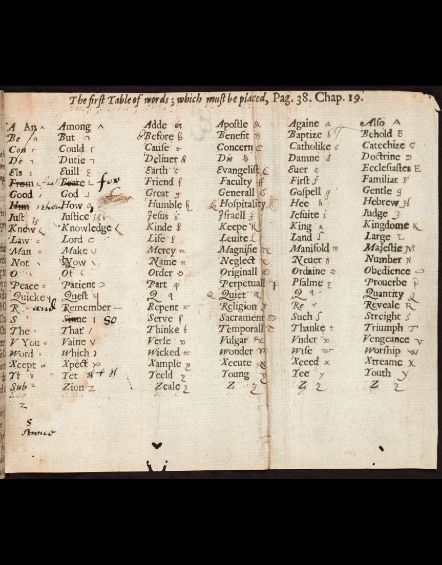 The first Table of words; which must be placed, Pag. 38. Chap. 19.
A An Among Adde Apostle Againe Also
Be But Before Benefit Baptize Behold
Con Could Cause Concern Catholike Catechize
De Dutie Deliuer Die Damne Doctrine
Eis Euill Earth Evangelist Euer Ecclesiastes
From Feare for Friend Faculty First Familiar
Good God Great Generall Gospell Gentle
How Humble Hospitality Hee Hebrew
Iust Iustice Iesus Israell Iesuite Iudge
Knew Knowledge Kinde Keepe King Kingdome
Law Lord Life Leuite Land Large
Man Make Mercy Magnifie Manifold Maiestie
Not Now Name Neglect Neuer Number
O Of Order Originall Ordaine Obedience
Peace Patient Part Perpetuall Psalme Prouerbe
Quicke Quest Q Quiet Q Quantity
R and Remember Repent Religion Re Reveale
S so Serve Sacrament Such Streight
The That Thinke Temporall Thanke Triumph
V You Vaine Verse Vulgar Vnder Vengeance
Word Which Wicked Wonder Wise Worship
Xcept Xpect Xample Xecute Xceed Xtreame
Yt Yet Yeeld Young Yee Youth
Sub Zion Zeale Z Z Z
z
s